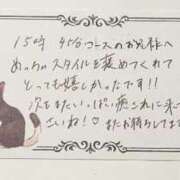 15時 45分コースのお兄様へ
めっちゃスタイルを褒めてくれて
とっても嬉しかったです!!
次もまたいっぱい癒されに来て
さいね!♡ またお待ちしてます